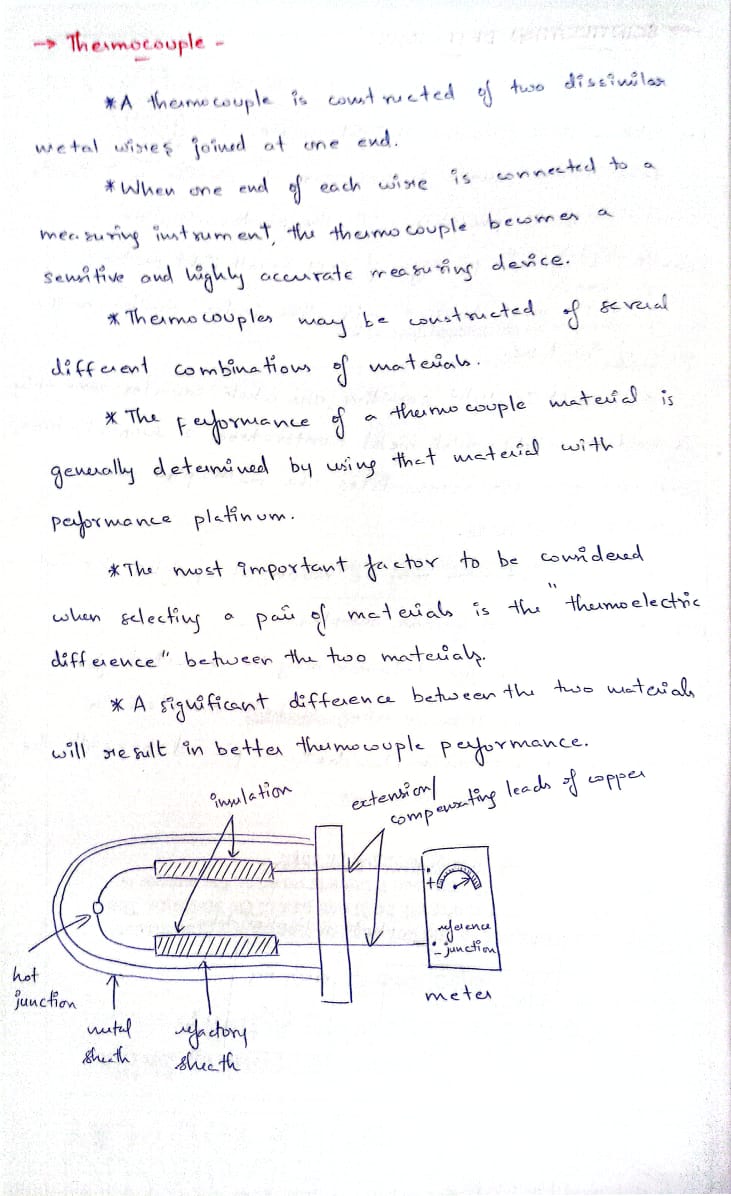 → Thermocouple -
* A thermocouple is constructed of two dissimilar
metal wires joined at one end.
* When one end of each wire is connected to a
measuring instrument, the thermocouple becomes a
sensitive and highly accurate measuring device.
* Thermocouples may be constructed of several
different combinations of materials.
* The performance of a thermocouple material is
generally determined by using that material with
performance platinum.
* The most important factor to be considered
when selecting a pair of materials is the "thermoelectric
difference" between the two materials.
* A significant difference between the two materials
will result in better thermocouple performance.
insulation
extension/
compensating leads of copper
+
reference
- junction
meter
hot
junction
metal
sheath
refactory
sheath